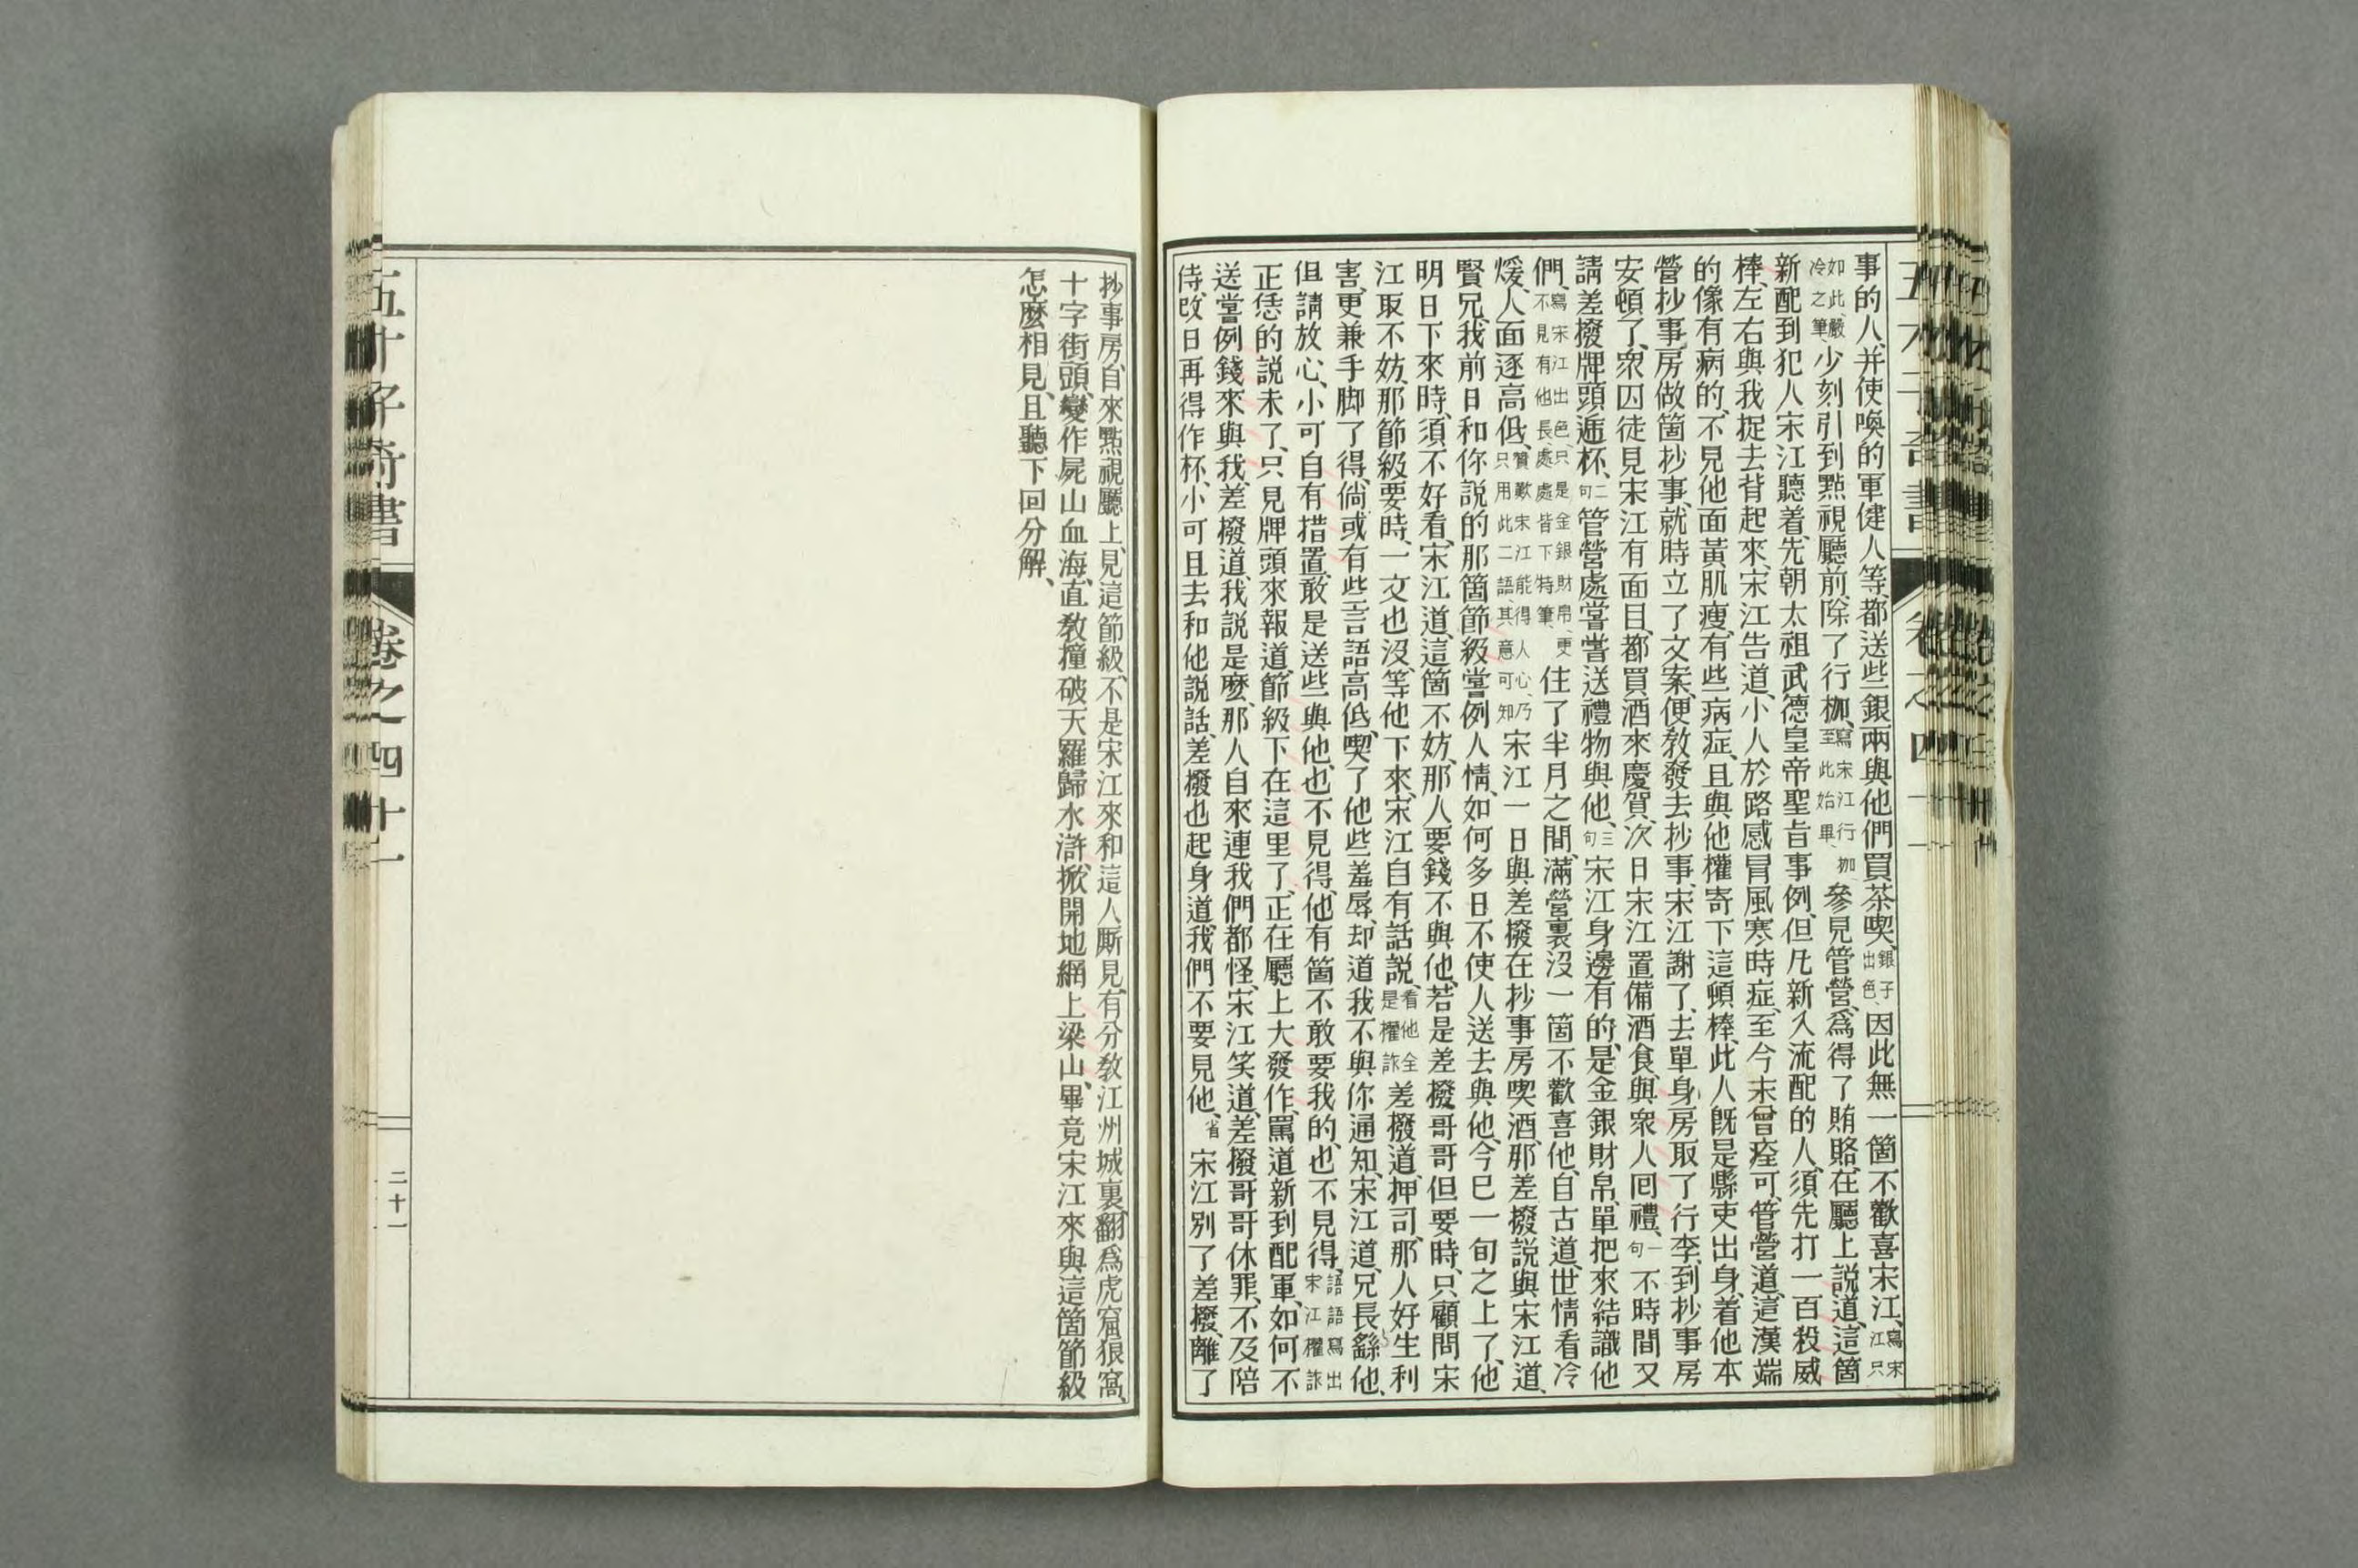 事的人、并使喚的軍健人等、都送些銀兩與他們買茶喫、銀子出色、因此無一箇不歡喜宋江、寫宋江只
如此、嚴冷之筆、少刻引到點視廳前、除了行枷、寫宋江行枷、至此始畢、參見管營、爲得了賄賂、在廳上説道、這箇
新配到犯人宋江聽着、先朝太祖武德皇帝聖旨事例、但凡新入流配的人、須先打一百殺威
棒、左右與我捉去背起來、宋江告道、小人於路感冒風寒時症、至今未曾痊可、管營道、這漢端
的像有病的、不見他面黃肌瘦、有些病症、且與他權寄下這頓棒、此人旣是縣吏出身、着他本
營抄事房做箇抄事、就時立了文案、便敎發去抄事、宋江謝了、去單身房取了行李、到抄事房
安頓了、衆囚徒見宋江有面目、都買酒來慶賀、次日宋江置備酒食、與衆人囘禮、一句不時間又
請差撥牌頭遞杯、二句管營處嘗嘗送禮物與他、三句宋江身邊有的是金銀財帛、單把來結識他
們、寫宋江出色、只是金銀財帛、更不見有他長、處處皆下特筆、住了半月之間、滿營裏沒一箇不歡喜他、自古道、世情看冷
煖、人面逐高低、贊歎宋江能得人心、乃只用此二語、其意可知宋江一日與差撥在抄事房喫酒、那差撥説與宋江道、
賢兄、我前日和你説的那箇節級嘗例人情、如何多日不使人送去與他、今已一旬之上了、他
明日下來時、須不好看、宋江道、這箇不妨、那人要錢不與他、若是差撥哥哥但要時、只顧問宋
江取不妨、那節級要時、一文也沒、等他下來、宋江自有話説、看他全是權詐差撥道、押司、那人好生利
害、更兼手脚了得、倘或有些言語高低、喫了他些羞辱、却道我不與你通知、宋江道、兄長繇他、
但請放心、小可自有措置、敢是送些與他、也不見得、他有箇不敢要我的、也不見得、語語寫出宋江權詐
正恁的説未了、只見牌頭來報道、節級下在這里了、正在廳上大發作、罵道新到配軍、如何不
送嘗例錢來與我、差撥道、我説是麽、那人自來連我們都怪、宋江笑道、差撥哥哥休罪、不及陪
侍、改日再得作杯、小可且去和他説話、差撥也起身道、我們不要見他、省宋江別了差撥、離了
抄事房、自來點視廳上、見這節級、不是宋江來和這人厮見、有分敎江州城裏、翻爲虎窟狼窩、
十字街頭、變作屍山血海、直敎撞破天羅歸水滸、掀開地網上梁山、畢竟宋江來與這箇節級
怎麽相見、且聽下回分解、
五才子奇書
卷之四十一
二十一